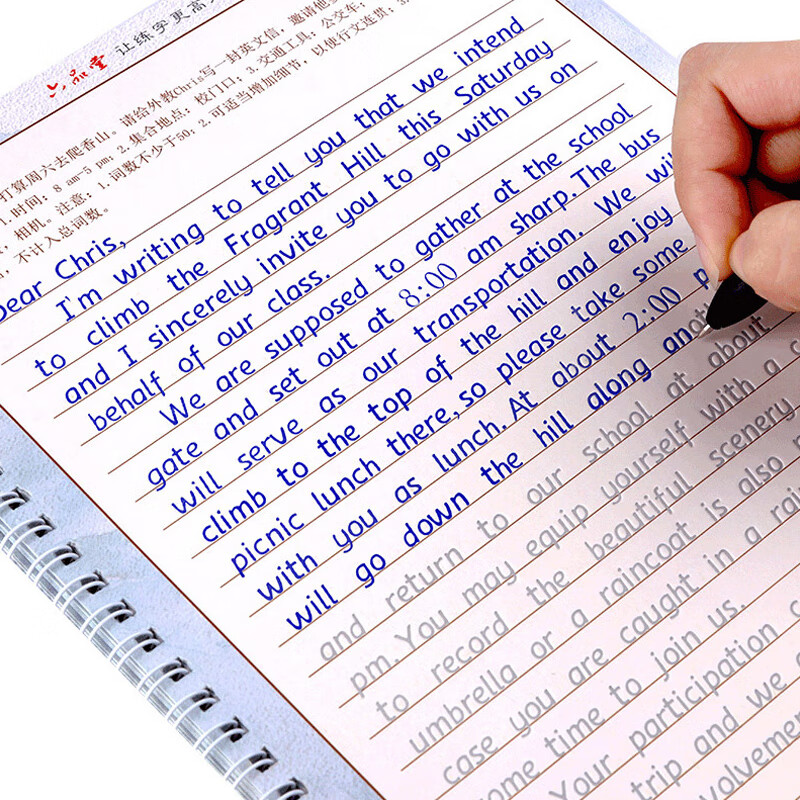 六品堂 让练字更高
打算周六去爬香山。请给外教Chris写一封英文信，邀请他
1.时间：8 am-5 pm; 2.集合地点：校门口；3.交通工具：公交车；
相机。注意：1.词数不少于50；2.可适当增加细节，以使行文连贯；
不计入总词数。
Dear Chris,
I'm writing to tell you that we intend
to climb the Fragrant Hill this Saturday
and I sincerely invite you to go with us on
behalf of our class.
We are supposed to gather at the school
gate and set out at 8:00 am sharp. The bus
will serve as our transportation. We wi
climb to the top of the hill and enjoy
picnic lunch there, so please take some
with you as lunch. At about 2:00 p
will go down the hill along anoth
and return to our school at about
pm. You may equip yourself with a c
to record the beautiful scenery
umbrella or a raincoat is also
case you are caught in a rai
ome time to join us.
Your participation
trip and we
volvemen